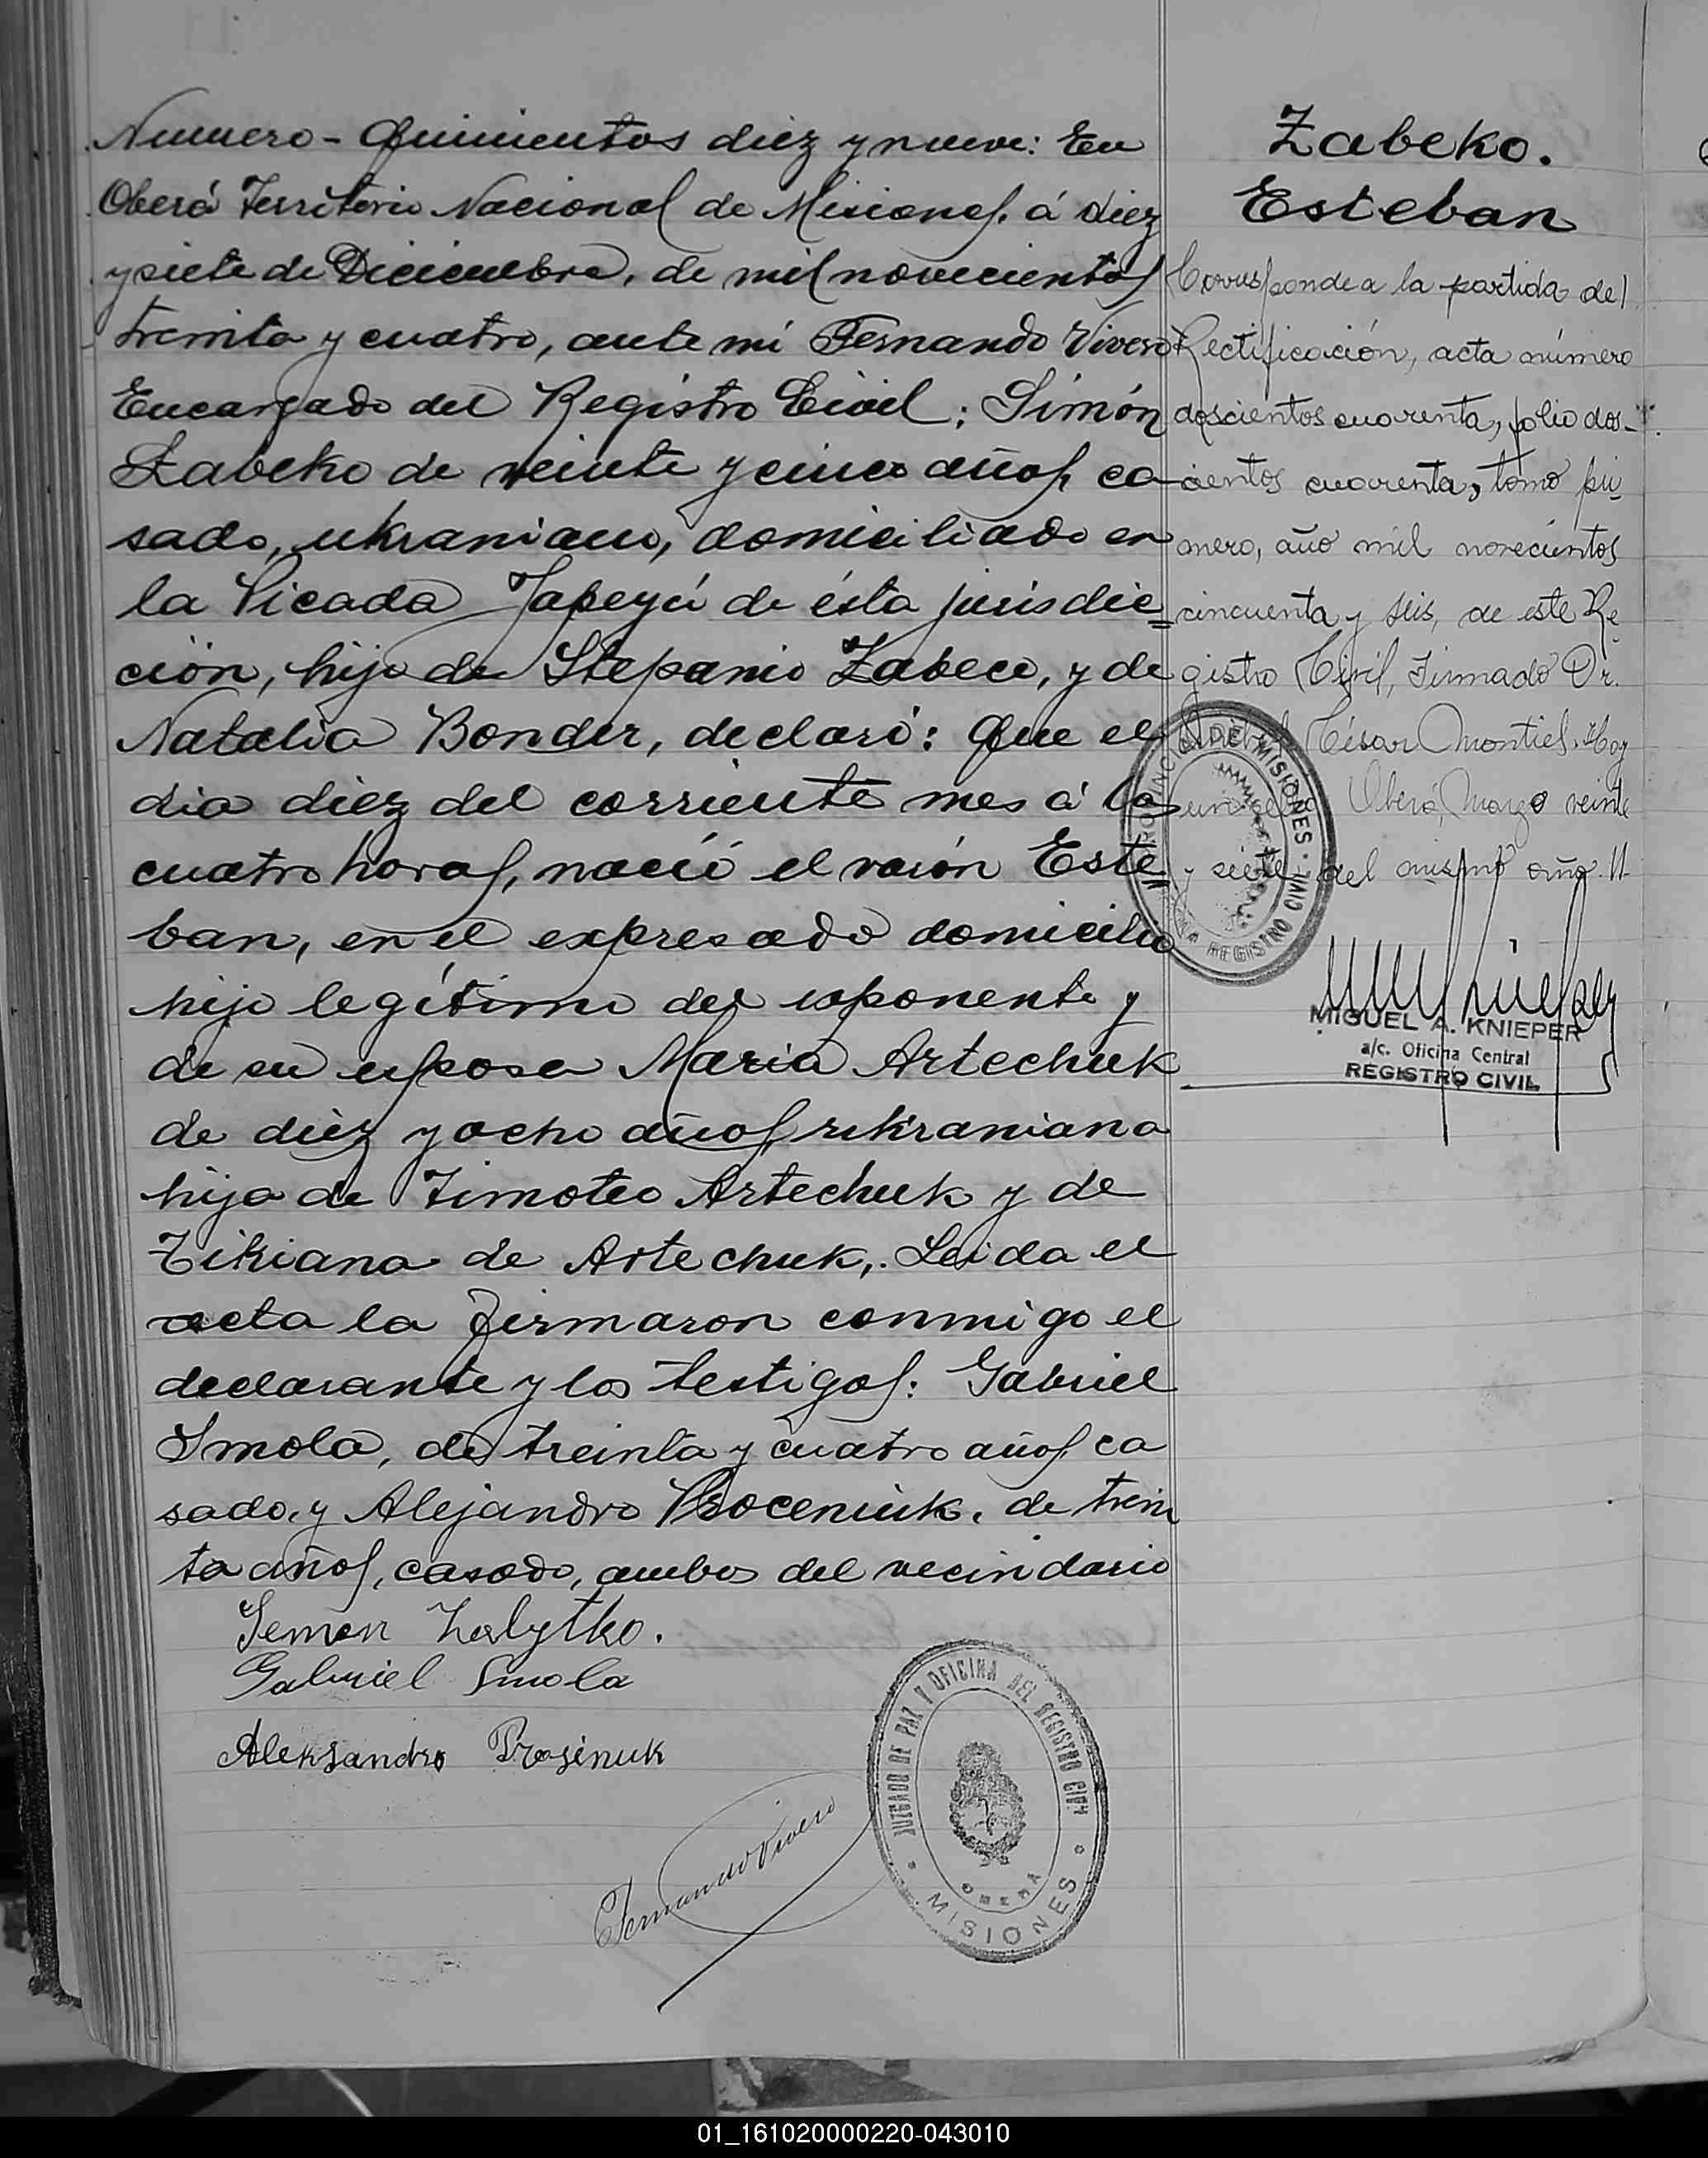 Numero - Quinientos diez y nueve: En
Oberá Territorio Nacional de Misiones, á diez
y siete de Diciembre, de mil novecientos
treinta y cuatro, ante mi Fernando Vivero
Encargado del Registro Civil; Simón
Zabeko de veinte y cinco años, ca-
sado, ukraniano, domiciliado en
la Picada Yapeyú de ésta jurisdic=
ción, hijo de Stepanio Zabeco, y de
Natalia Bonder, declaró: Que el
dia diez del corriente mes á las
cuatro horas, nació el varón Este=
ban, en el expresado domicilio
hijo legítimo del exponente y
de su esposa Maria Artechuk
de diez y ocho años, ukraniana
hija de Timoteo Artechuk y de
Tikiana de Artechuk,. Leida el
acta la firmaron conmigo el
declarante y los testigos: Gabriel
Smola, de treinta y cuatro años, ca
sado, y Alejandro Proceniuk, de trein
ta años, casado, ambos del vecindario
Semen Zalytko.
Gabriel Smola
Aleksandro Prosinuk
Fernando Vivero
JUZGADO DE PAZ Y OFICINA DEL REGISTRO CIVIL
OBERÁ
MISIONES
Zabeko.
Esteban
Corresponde a la partida de
Rectificación, acta número
doscientos cuarenta, folio dos-
cientos cuarenta, tomo pri
mero, año mil novecientos
cincuenta y seis, de este Re
gistro Civil, Firmado Dr.
César Montiel. Hay
un sello Oberá, Marzo veinte
y siete del mismo año.
PROVINCIA DE MISIONES
REGISTRO CIVIL
MIGUEL A. KNIEPER
a/c. Oficina Central
REGISTRO CIVIL
01_161020000220-043010